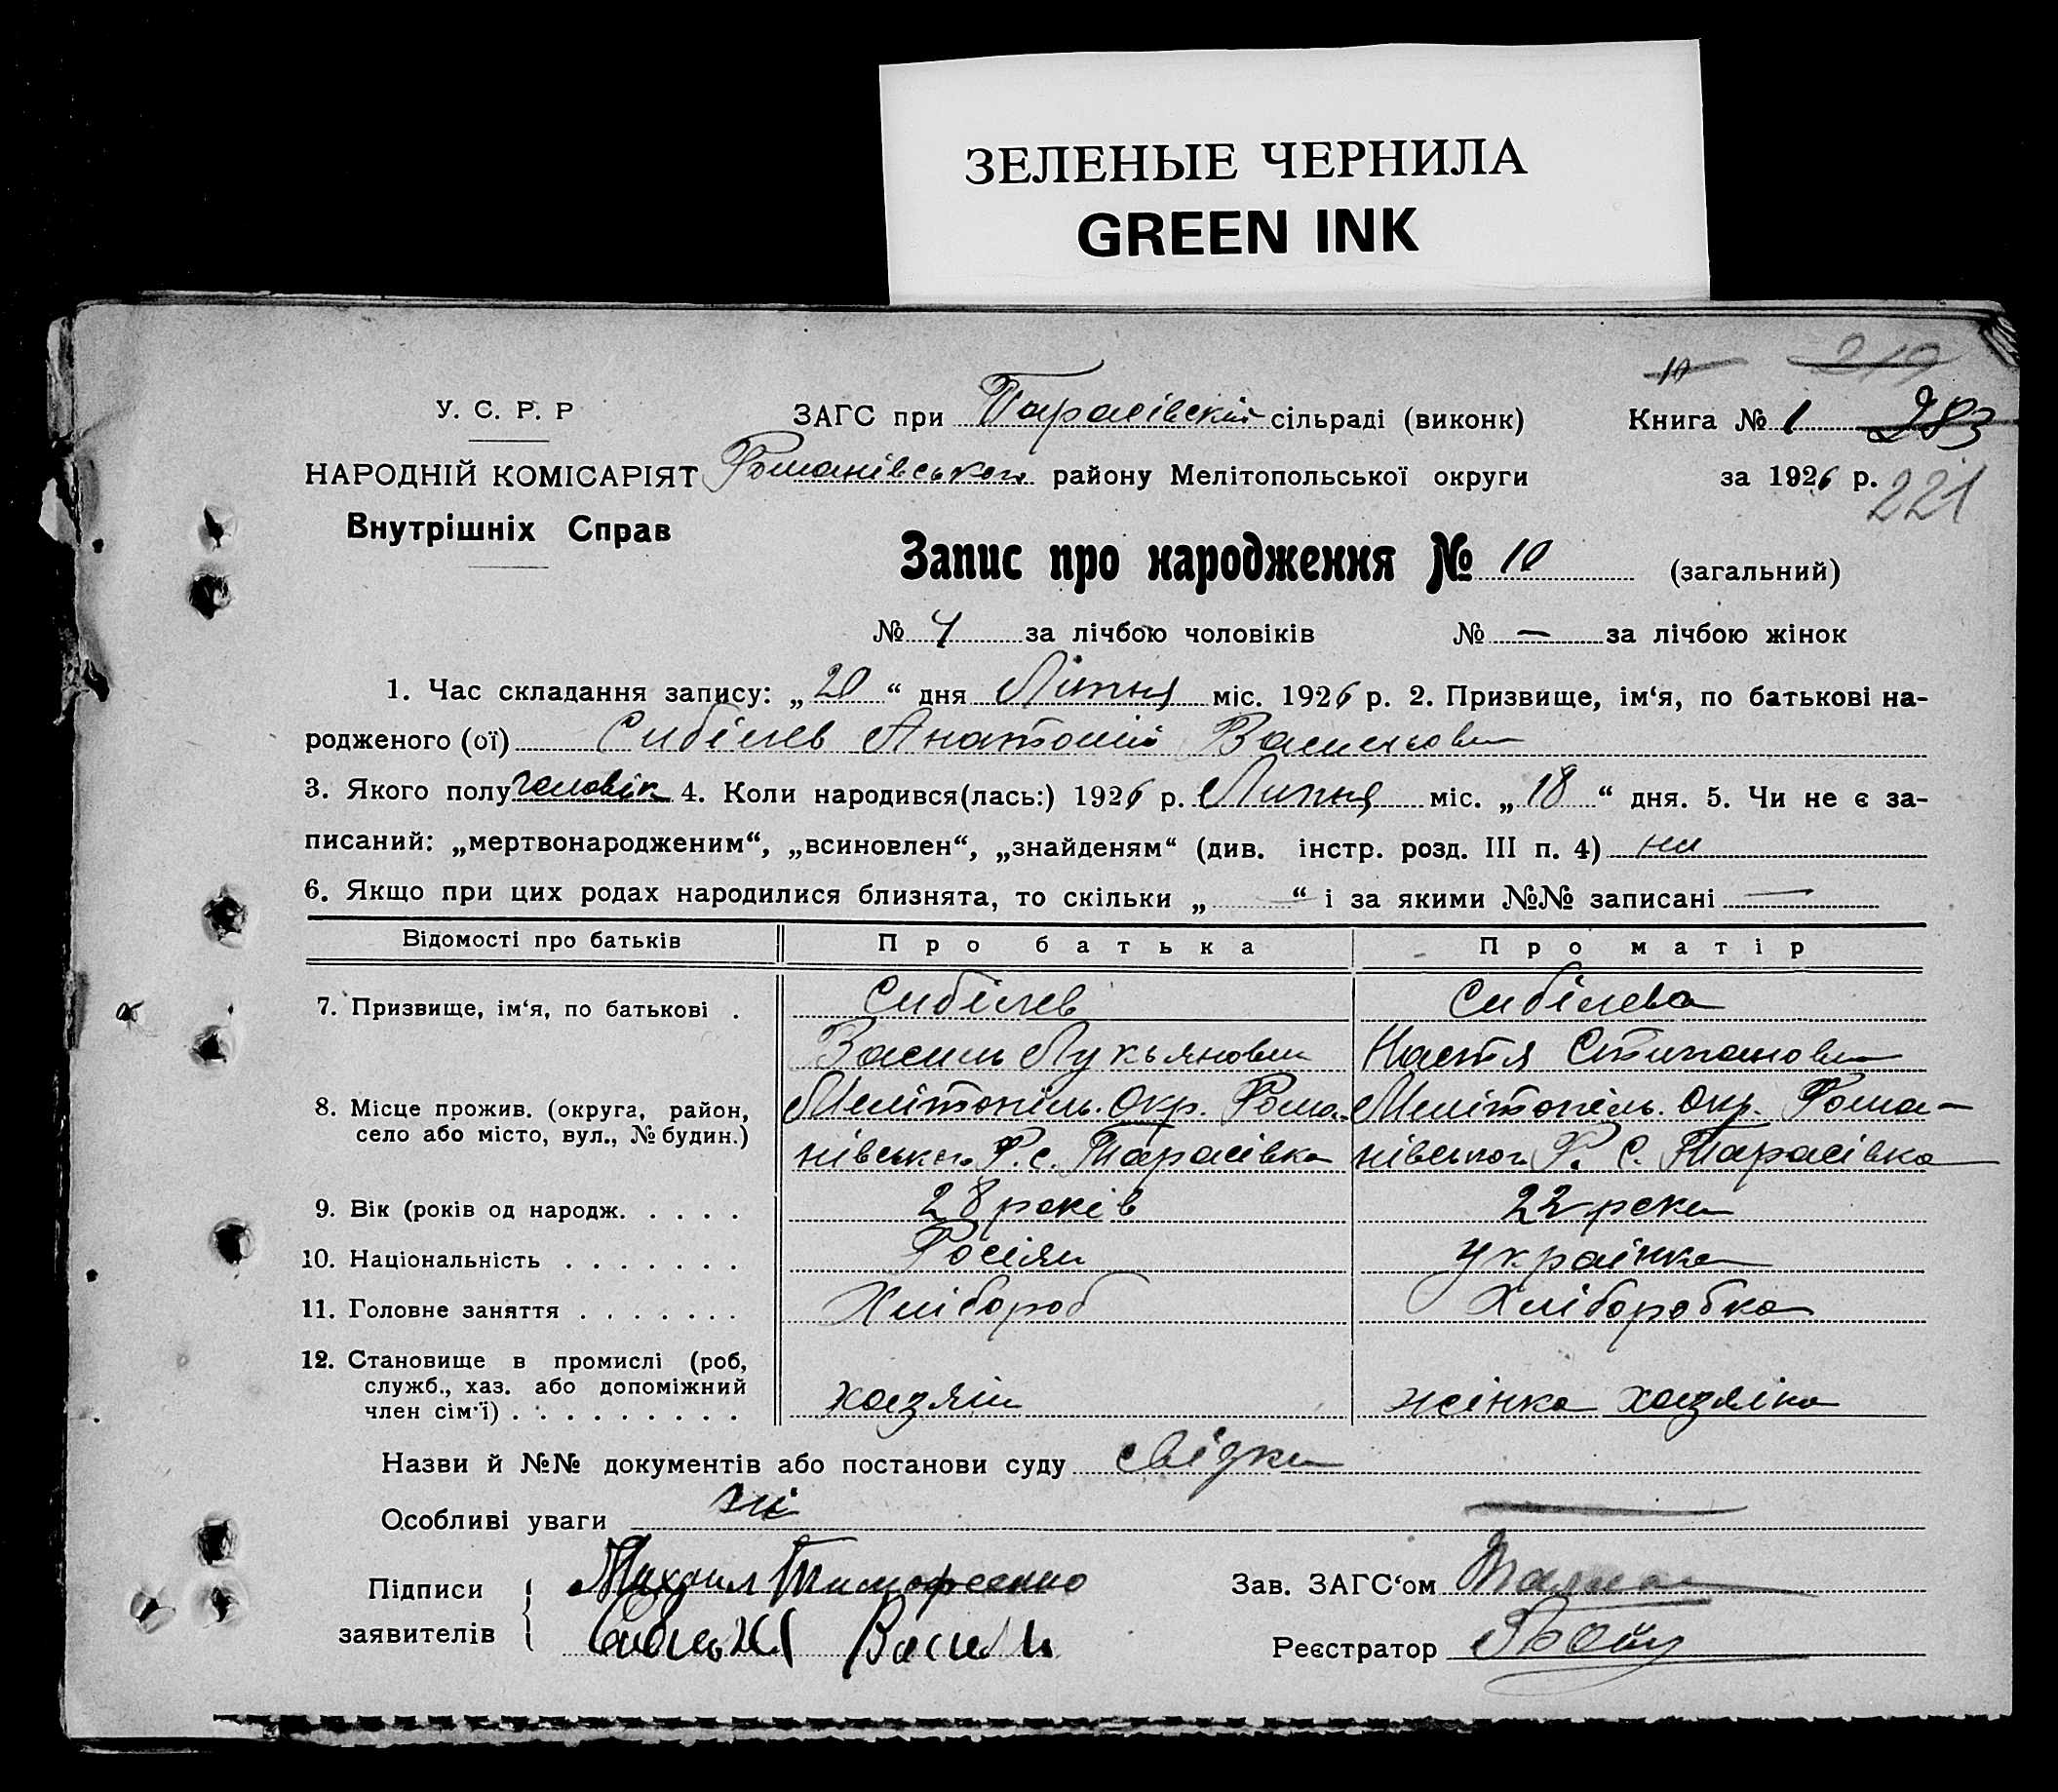 ЗЕЛЕНЫЕ ЧЕРНИЛА
GREEN INK
10 219
У. С. Р. Р ЗАГС при Тарасівській сільраді (виконк) Книга № 1 283
НАРОДНІЙ КОМІСАРІЯТ Романівського району Мелітопольської округи за 1926 р. 221
Внутрішніх Справ
Запис про народження № 10 (загальний)
№ 4 за лічбою чоловіків № — за лічбою жінок
1. Час складання запису: „ 20 “ дня Липня міс. 1926 р. 2. Призвище, ім‘я, по батькові на-
родженого (ої) Сибілев Анатолій Василєвич
3. Якого полу чоловік 4. Коли народився(лась:) 1926 р. Липня міс. „ 18 “ дня. 5. Чи не є за-
писаний: „мертвонародженим“, „всиновлен“, „знайденям“ (див. інстр. розд. III п. 4) ни
6. Якщо при цих родах народилися близнята, то скільки „ — “ і за якими №№ записані —
Відомості про батьків Про батька Про матір
7. Призвище, ім‘я, по батькові . Сибілев Сибілева
Василь Лукьянович Настя Стипановна
8. Місце прожив. (округа, район, Мелітопіль. Окр. Рома- Мелітопіль. Окр. Рома-
село або місто, вул., № будин.) нівськго Р. с. Тарасівка нівського Р. С. Тарасівка
9. Вік (років од народж. . . . . 28 років 22 роки
10. Національність . . . . . . . Росіян Українка
11. Головне заняття . . . . . . . Хлібороб Хліборобка
12. Становище в промислі (роб,
служб., хаз. або допоміжний
член сім‘ї) . . . . . . . . . хазяїн жінка хазяїна
Назви й №№ документів або постанови суду свідки
Особливі уваги ні
Підписи Михаил Тимофеенко Зав. ЗАГС‘ом
заявителів Василь Реєстратор